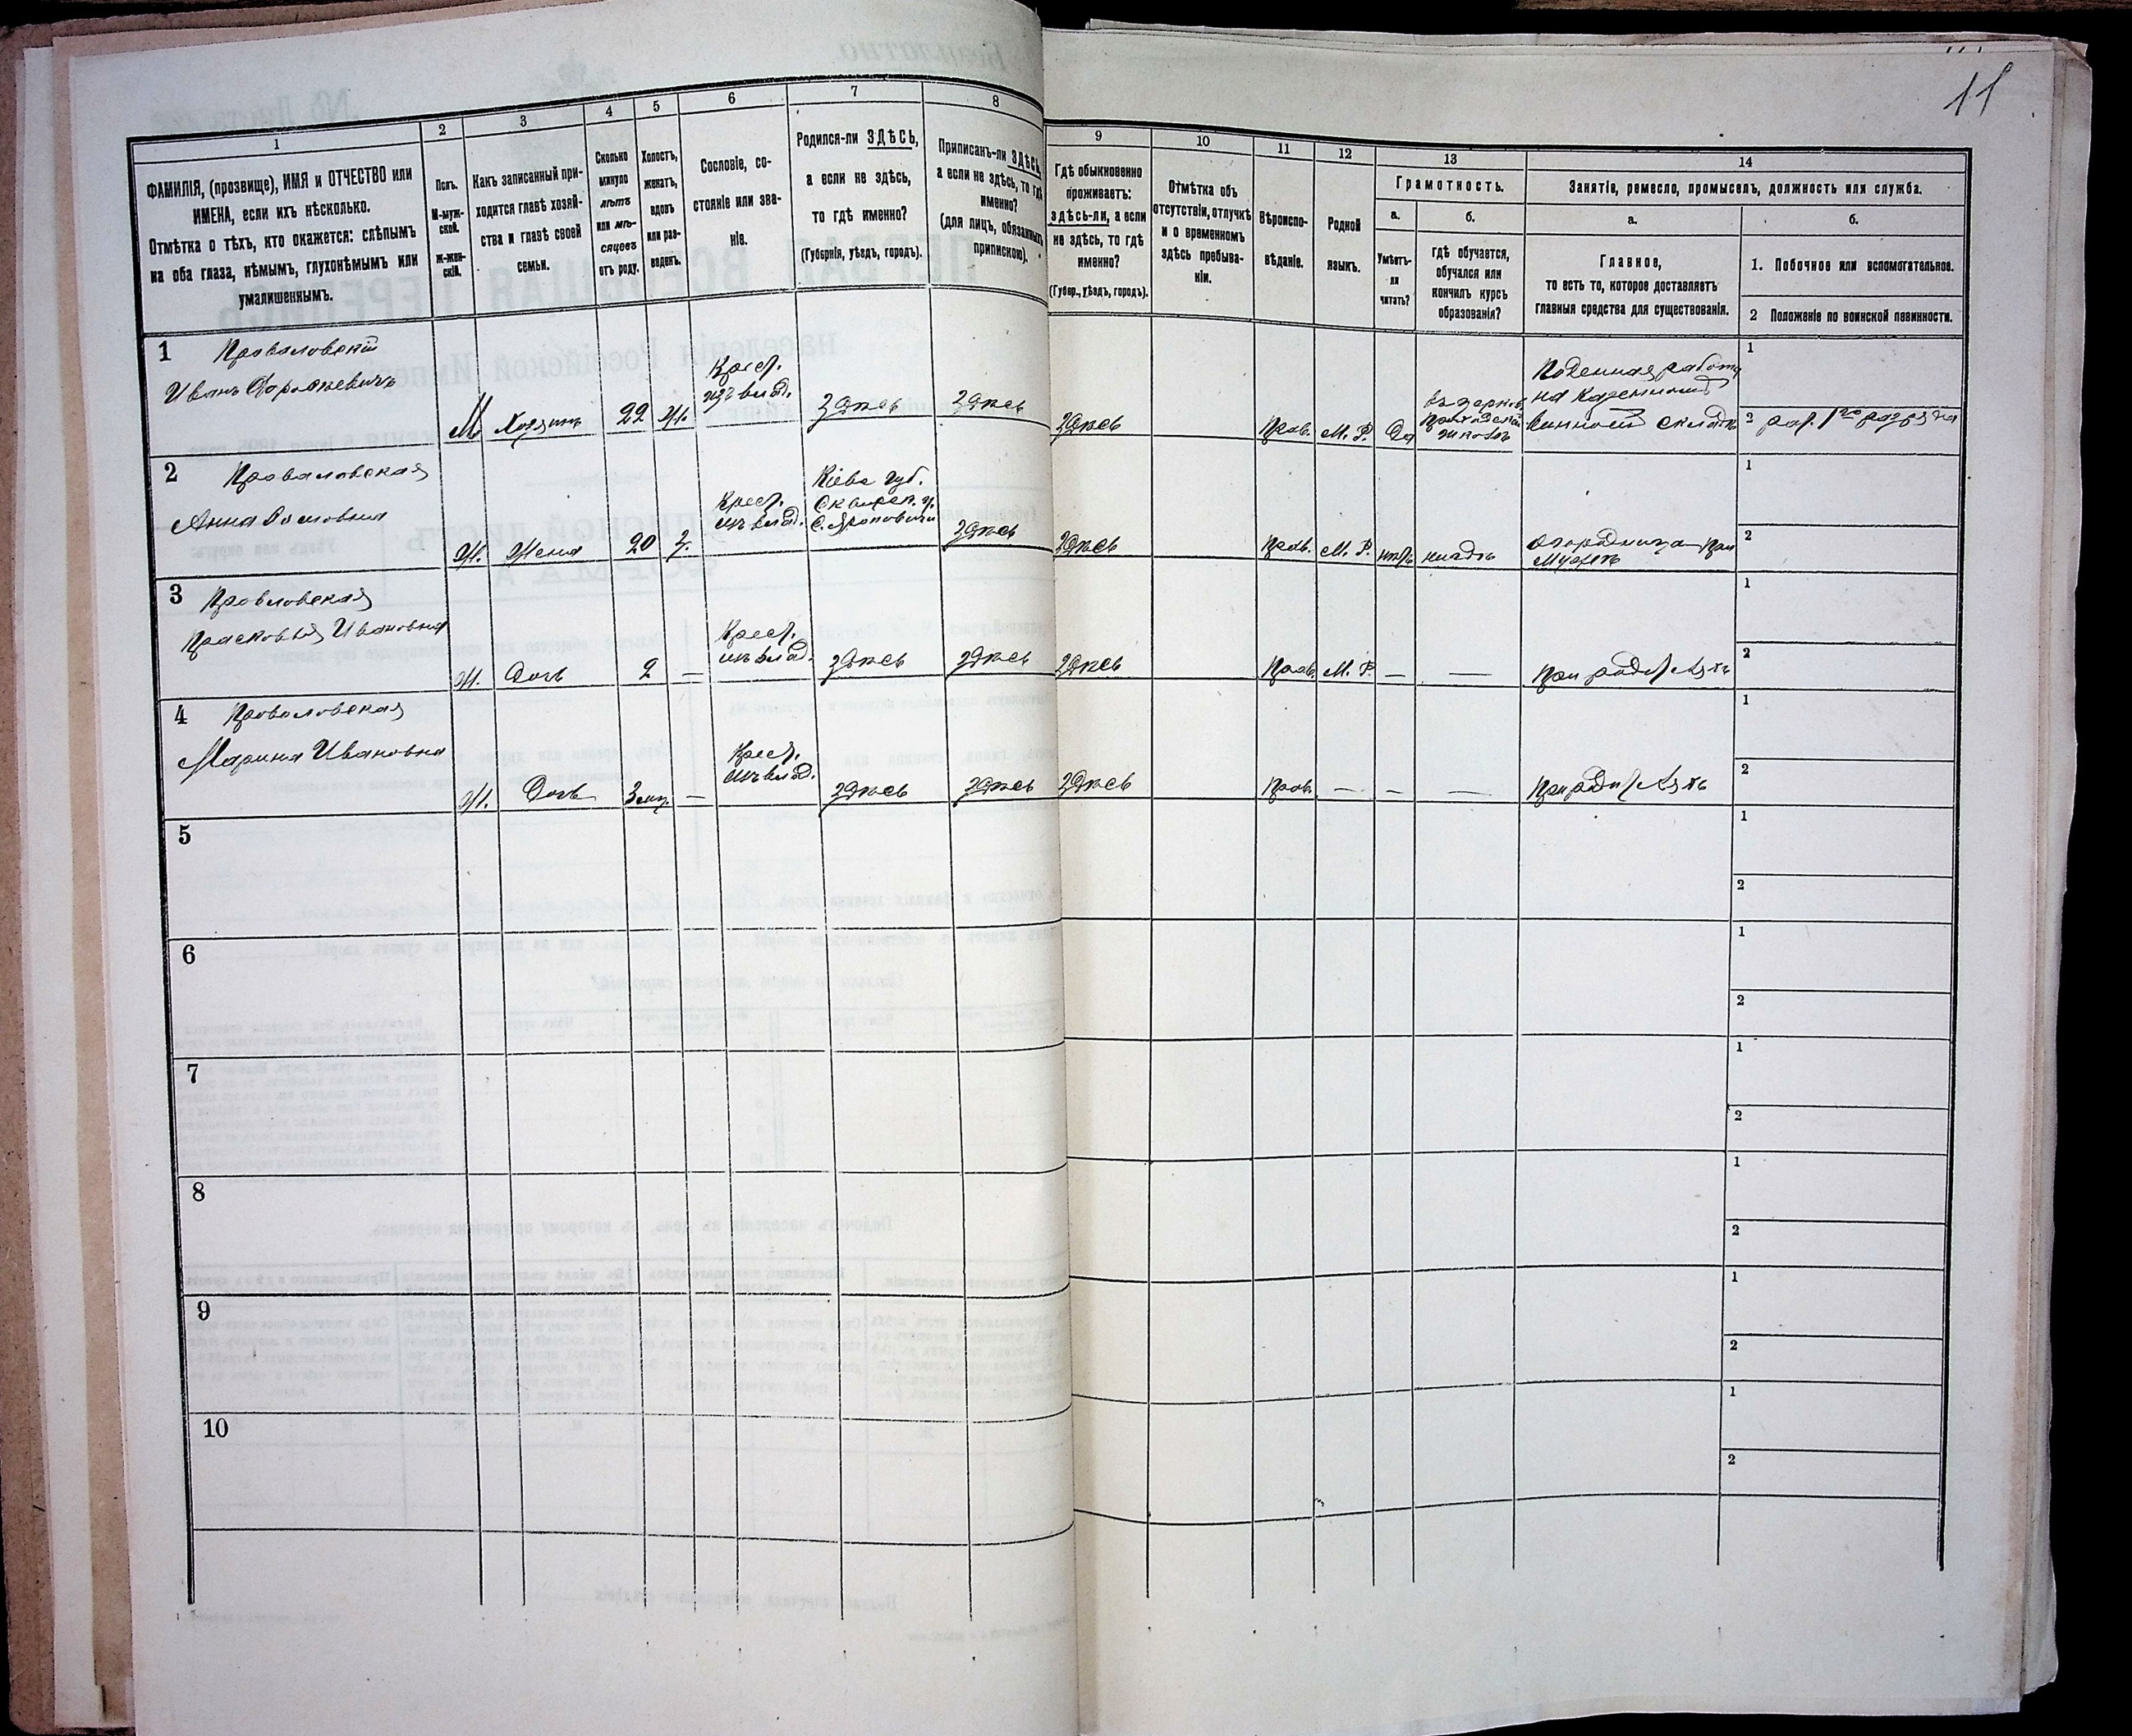 11
1
2
3
4
5
6
7
8
9
10
11
12
13
14
ФАМИЛІЯ, (прозвище), ИМЯ и ОТЧЕСТВО или
ИМЕНА, если ихъ нѣсколько.
Отмѣтка о тѣхъ, кто окажется: слѣпымъ
на оба глаза, нѣмымъ, глухонѣмымъ или
умалишеннымъ.
Полъ.
М-муж-
ской.
Ж-жен-
скій.
Какъ записанный при-
ходится главѣ хозяй-
ства и главѣ своей
семьи.
Сколько
минуло
лѣтъ
или мѣ-
сяцевъ
отъ роду.
Холостъ,
женатъ,
вдовъ
или раз-
веденъ.
Сословіе, со-
стояніе или зва-
ніе.
Родился-ли ЗДѢСЬ,
а если не здѣсь,
то гдѣ именно?
(Губернія, уѣздъ, городъ).
Приписанъ-ли ЗДѢСЬ,
а если не здѣсь, то гдѣ
именно?
(для лицъ, обязанныхъ
припискою).
Гдѣ обыкновенно
проживаетъ:
здѣсь-ли, а если
не здѣсь, то гдѣ
именно?
(Губер., уѣздъ, городъ).
Отмѣтка объ
отсутствіи, отлучкѣ
и о временномъ
здѣсь пребыва-
ніи.
Вѣроиспо-
вѣданіе.
Родной
языкъ.
Грамотность.
а.
б.
Умѣетъ-
ли
читать?
гдѣ обучается,
обучался или
кончилъ курсъ
образованія?
Занятіе, ремесло, промыселъ, должность или служба.
а.
б.
Главное,
то есть то, которое доставляетъ
главныя средства для существованія.
1. Побочное или вспомогательное.
2 Положеніе по воинской повинности.
1 Проваловскій
Иванъ
М Хозяинъ 22 Ж.
Крест.
изъ влад.
здѣсь здѣсь здѣсь Прав. М. Р. Да
въ церков.
приходской
школѣ
Поденная работа
на Казенномъ
винномъ складѣ
1
2 рат. 1го разряда
2 Проваловская
Анна
Ж. Жена 20 З.
Крест.
изъ влад.
Кіевс. губ.
Сквирск. у.
здѣсь здѣсь Прав. М. Р. нѣтъ нигдѣ
при
мужѣ
1
2
3 Проваловская
Прасковья Ивановна
Ж. Дочь 2 —
Крест.
изъ влад.
здѣсь здѣсь здѣсь Прав. М. Р. — — При родителяхъ
1
2
4 Проваловская
Марина Ивановна
Ж. Дочь 3 мц. —
Крест.
изъ влад.
здѣсь здѣсь здѣсь Прав. — — — При родителяхъ
1
2
5
1
2
6
1
2
7
1
2
8
1
2
9
1
2
10
1
2